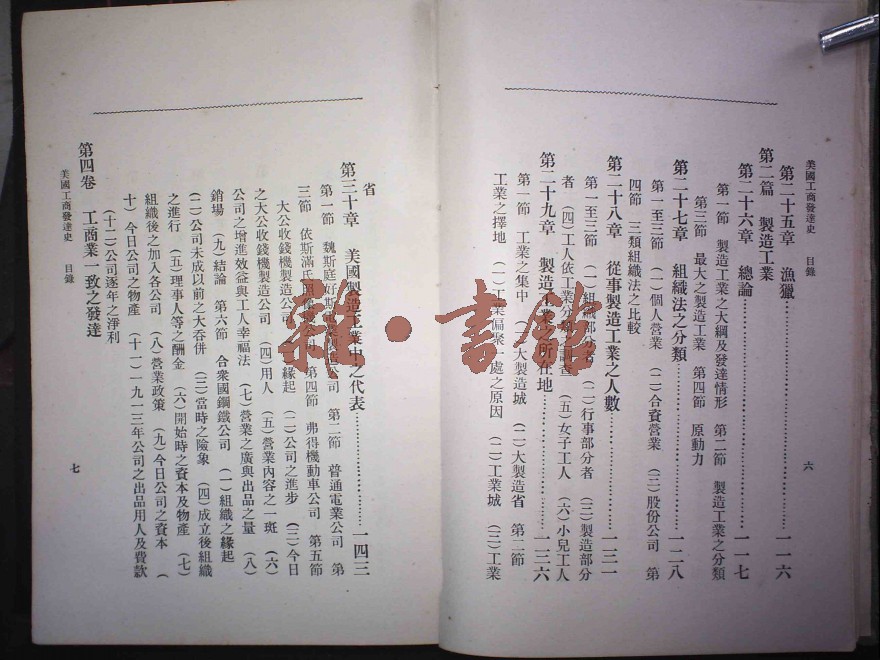 美國工商發達史 目錄
六
第二十五章 漁獵……一一六
第二篇 製造工業
第二十六章 總論……一一七
第一節 製造工業之大綱及發達情形 第二節 製造工業之分類
第三節 最大之製造工業 第四節 原動力
第二十七章 組織法之分類……一二八
第一至三節 (一)個人營業 (二)合資營業 (三)股份公司 第
四節 三類組織法之比較
第二十八章 從事製造工業之人數……一三一
第一至三節 (一)組織部分者 (二)行事部分者 (三)製造部分
者 (四)工人依工業分類之調查 (五)女子工人 (六)小兒工人
第二十九章 製造工業之所在地……一三六
第一節 工業之集中 (一)大製造城 (二)大製造省 第二節
工業之擇地 (一)工業偏聚一處之原因 (二)工業城 (三)工業
省
第三十章 美國製造工業中之代表……一四三
第一節 魏斯庭好斯 公司 第二節 普通電業公司 第
三節 依斯滿氏 公司 第四節 弗得機動車公司 第五節
大公收錢機製造公司 (一)緣起 (二)公司之進步 (三)今日
之大公收錢機製造公司 (四)用人 (五)營業內容之一斑 (六)
公司之增進效益與工人幸福法 (七)營業之廣與出品之量 (八)
銷場 (九)結論 第六節 合衆國鋼鐵公司 (一)組織之緣起
(二)公司未成以前之大吞併 (三)當時之險象 (四)成立後組織
之進行 (五)理事人等之酬金 (六)開始時之資本及物產 (七)
組織後之加入各公司 (八)營業政策 (九)今日公司之資本 (
十)今日公司之物產 (十一)一九一三年公司之出品用人及費款
(十二)公司逐年之淨利
第四卷 工商業一致之發達
美國工商發達史 目錄
七
雜·書館